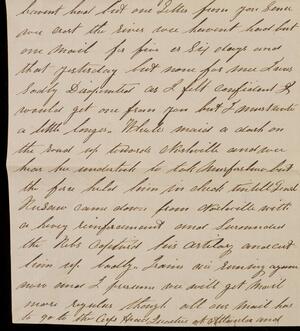 havent had but one Letter from you Since
we crost the river we havent had but
one mail for five or Six days and
that yesterday but none for me I was
Sadly Disapointed as I felt confident I
would get one from you but I must wait
a little longer. Wheeler maid a dash on
the road up towards Nashville and we
hear he undertook to take Murfresboro but
the force held him in check untill Genl
came down from Nashville with
a heavy reinforcement and Surounded
the Rebs Captured his artilery and cut
him up badly. Trains are running again
now and I presume we will get Mail
more regular though all our Mail has
to go to the Head Quarters at Atlanta and